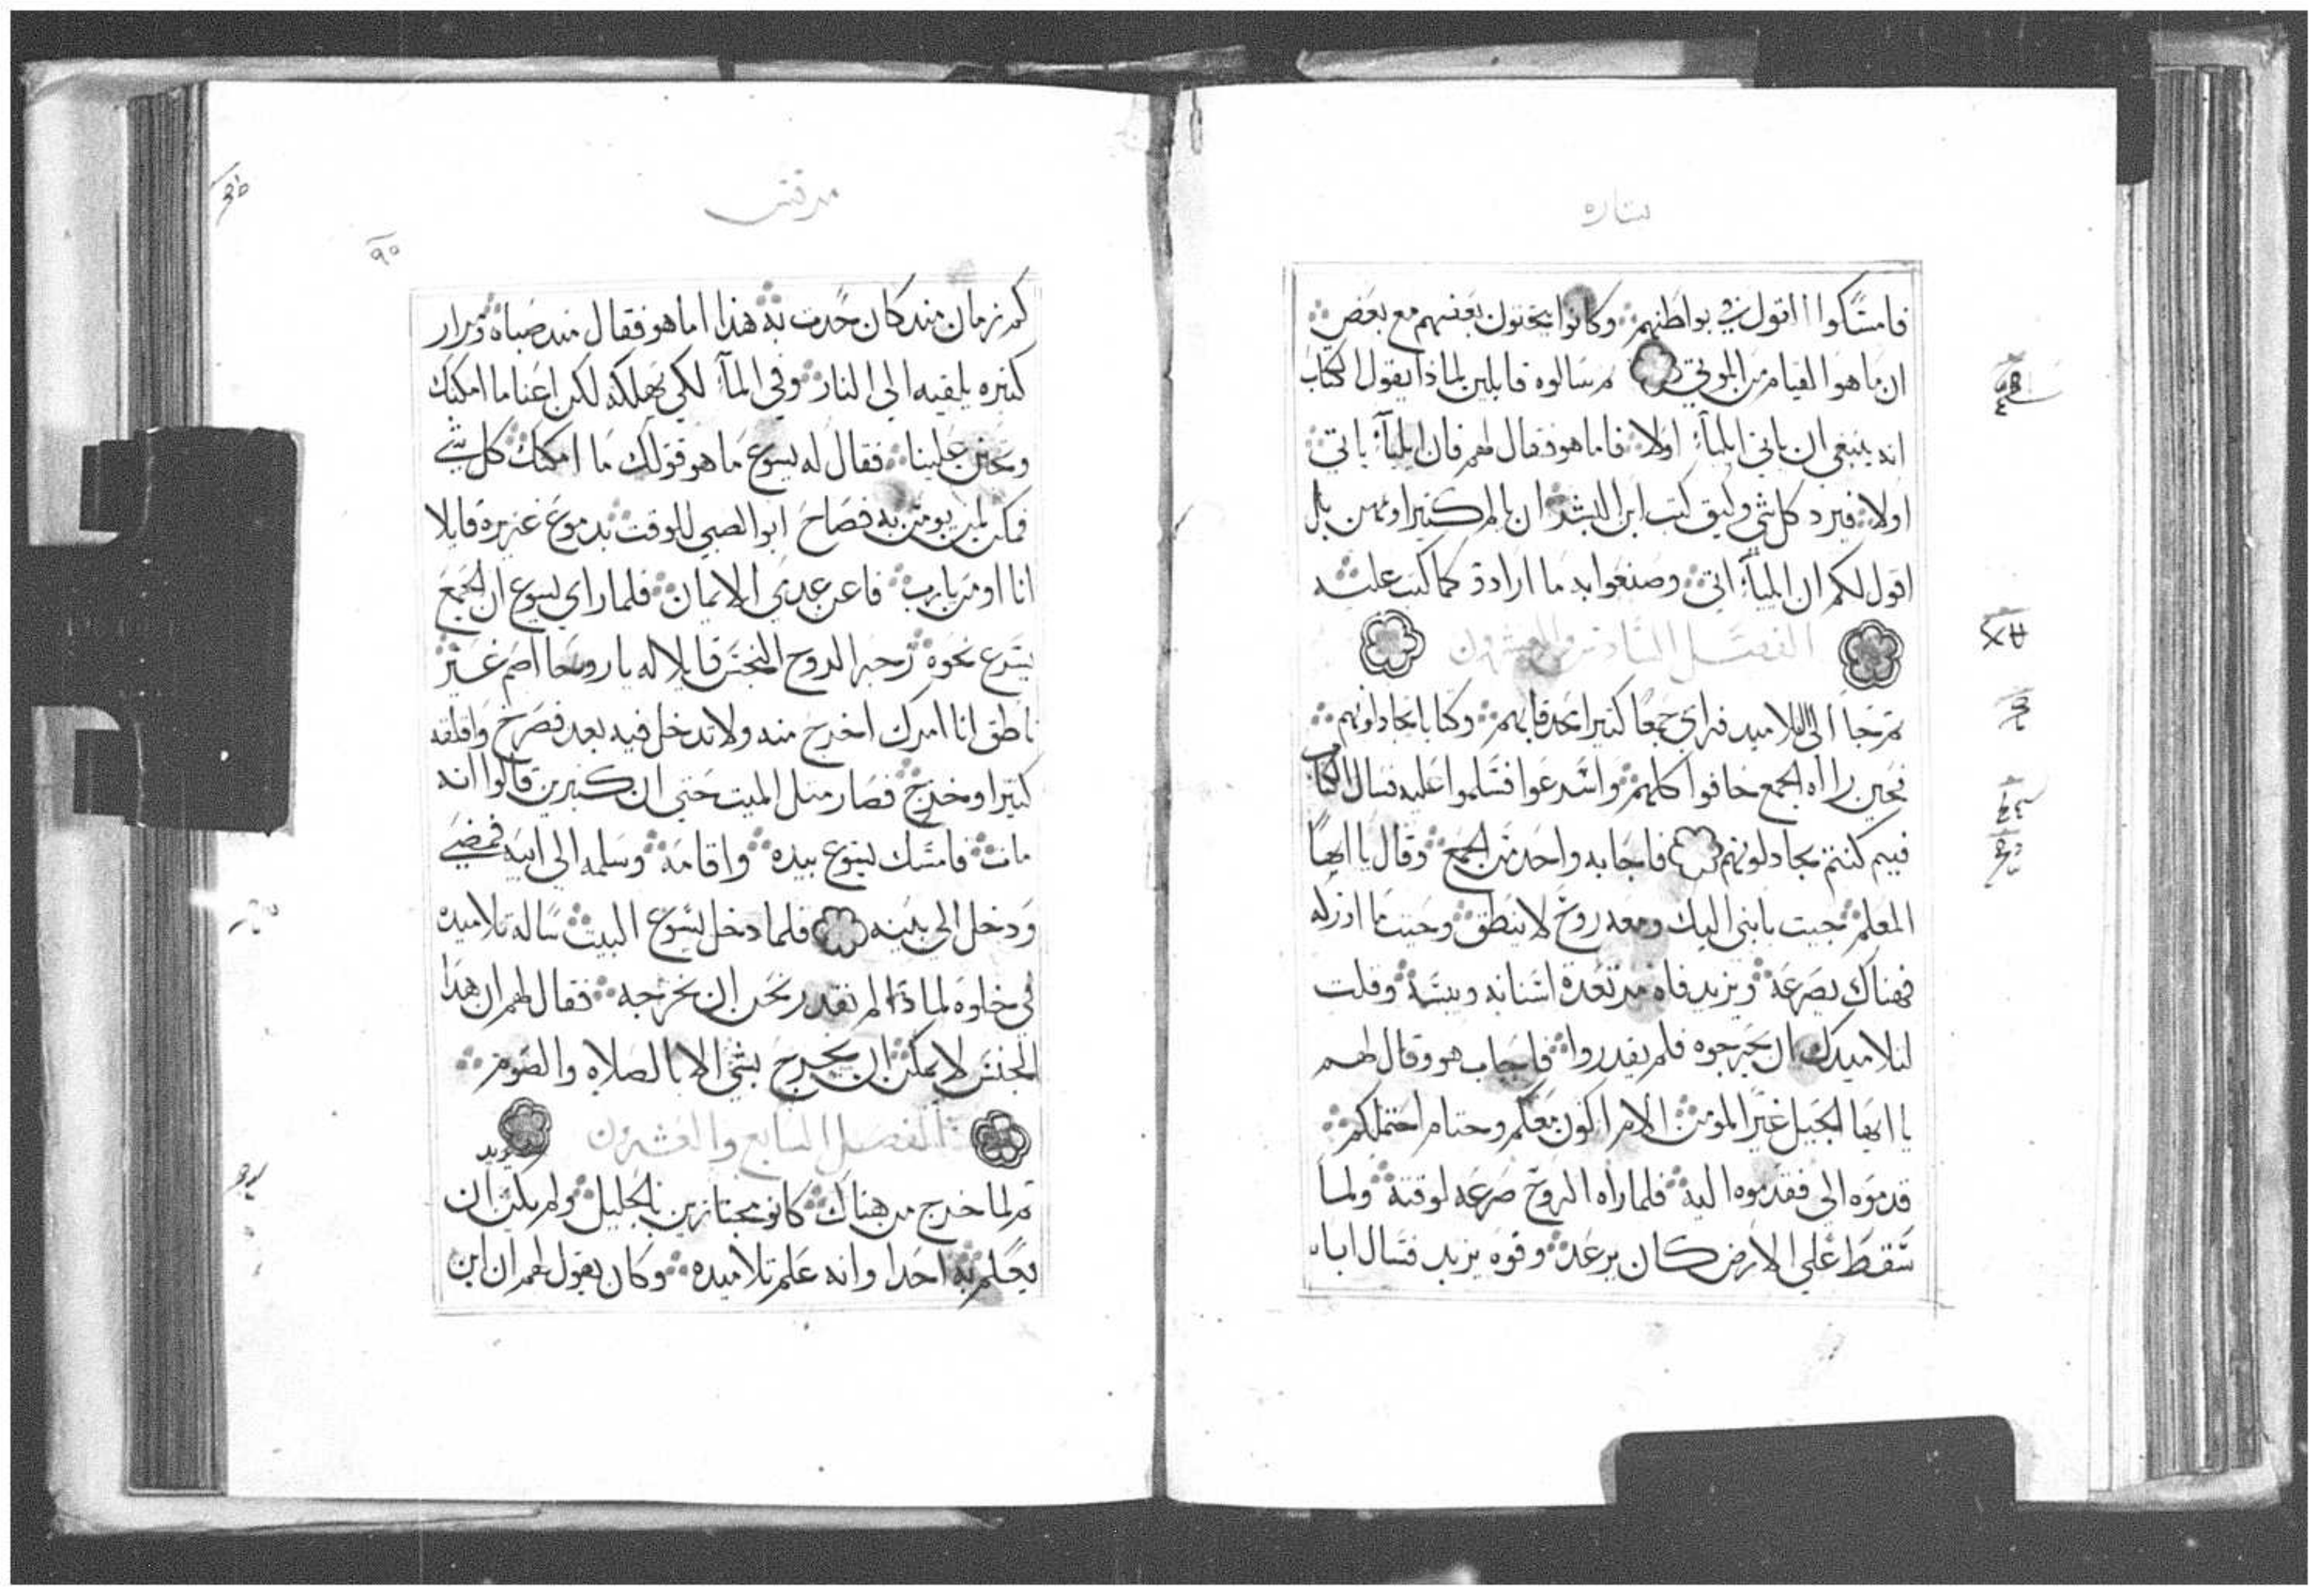 بشاره
فامسكوا القول في بواطنهم وكانوا يبحثون بعضهم مع بعض
ان ما هو القيام من الموتي ثم سالوه قايلين لماذا يقول الكتاب
انه ينبغي ان ياتي ايلياء اولا فاما هو فقال لهم فان ايلياء ياتي
اولا فيرد كل شي وكيف كتب ابن البشر ان يالم كثيرا ويمتهن بل
اقول لكم ان ايلياء اتي وصنعوا به ما ارادوة كما كتب عليه
الفصل السادس والعشرون
ثم جا الى التلاميد فراي جمعا كثيرا محدقا بهم وكتابا تجادلونهم
فحين راه الجمع خافوا كلهم واسرعوا فسلموا عليه فسال الكتاب
فيم كنتم تجادلونهم فاجابه واحد من الجمع وقال يا ايها
المعلم جيت بابني اليك ومعه روح لا ينطق وحيث ما ادركه
فهناك يصرعه ويزبد فاه ثم تقعدة اسنانه ويبسه وقلت
لتلاميدك ان يخرجوه فلم يقدروا فاجاب هو وقال لهم
يا ايها الجيل غير المومن الام اكون معكم وحتام احتملكم
قدموه الي فقدموه اليه فلما راه الروح صرعه لوقته ولما
سقط علي الارض كان يرعد وفوه يزبد فسال اباه
مرقس
٩٥
كم زمان مند كان حدث به هذا اما هو فقال مند صباه ومرار
كثيره يلقيه الي النار وفي الماء لكي يهلكه لكن اعنا ما امكنك
وتحنن علينا فقال له يسوع ما هو قولك ما امكنك كل شي
فمكن لمن يومن به فصاح ابو الصبي للوقت بدموع غزيرة قايلا
انا اومن يا رب فاعن عدمي الايمان فلما راي يسوع ان الجمع
يسرع نحوه زجر الروح النجس قايلا له يا روحا اصم غير
ناطق انا امرك اخرج منه ولا تدخل فيه بعد فصرخ واقلقه
كثيرا وخرج فصار مثل الميت حتي ان كثيرين قالوا انه
مات فامسك يسوع بيده واقامه وسلمه الي ابيه فمضي
ودخل الي بيته فلما دخل يسوع البيت ساله تلاميده
في خلوه لماذا لم نقدر نحن ان نخرجه فقال لهم ان هدا
الجنس لا يمكن ان يخرج بشي الا بالصلاه والصوم
الفصل السابع والعشرون
ثم لما خرج من هناك كانو مجتازين بالجليل ولم يكن يريد ان
يعلم به احدا وانه علم تلاميده وكان يقول لهم ان ابن